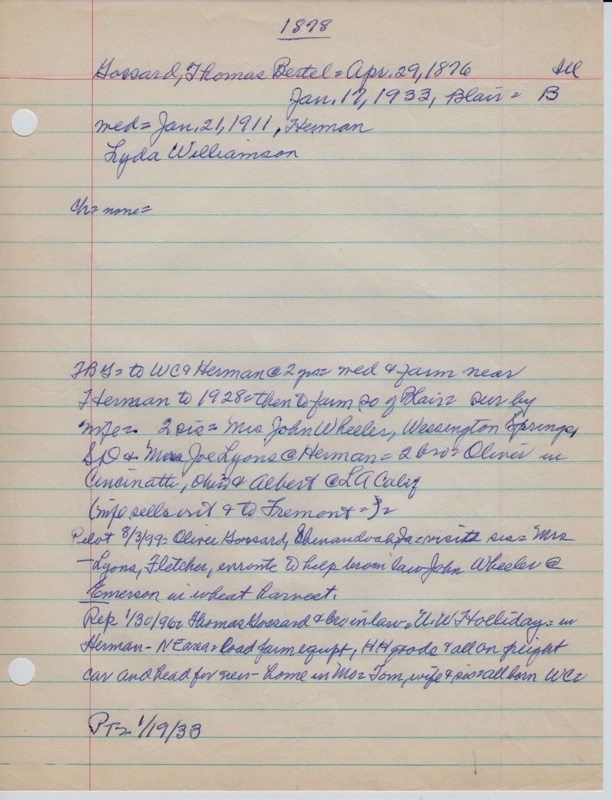 1878
Gossard, Thomas Bertel = Apr. 29, 1876 Ill
Jan. 17, 1933, Blair = B
med = Jan. 21, 1911, Herman
Lyda Williamson
Ch = none =
TBG = to WC & Herman @ 2 yrs = med & farm near
Herman to 1928 = then to farm so of Blair = sur by
wife = 2 sis = Mrs John Wheeler, Wessington Springs,
SD & Mrs Joe Lyons @ Herman = 2 bro = Oliver in
Cincinatti, Ohio & Albert @ LA Calif
(wife sells out & to Fremont =
Pilot 8/3/99 = Oliver Gossard, Shenandoah, Ia = visits sis = Mrs
Lyons, Fletcher, enroute to help bro in law John Wheeler @
Emerson in wheat harvest.
Rep 1/30/96 = Thomas Gossard & bro in law = Holliday = in
Herman - NE area = load farm equipt, HH goods & all on freight
car and head for new home in Mo = Tom, wife & sis = all born WC =
PT = 1/19/33